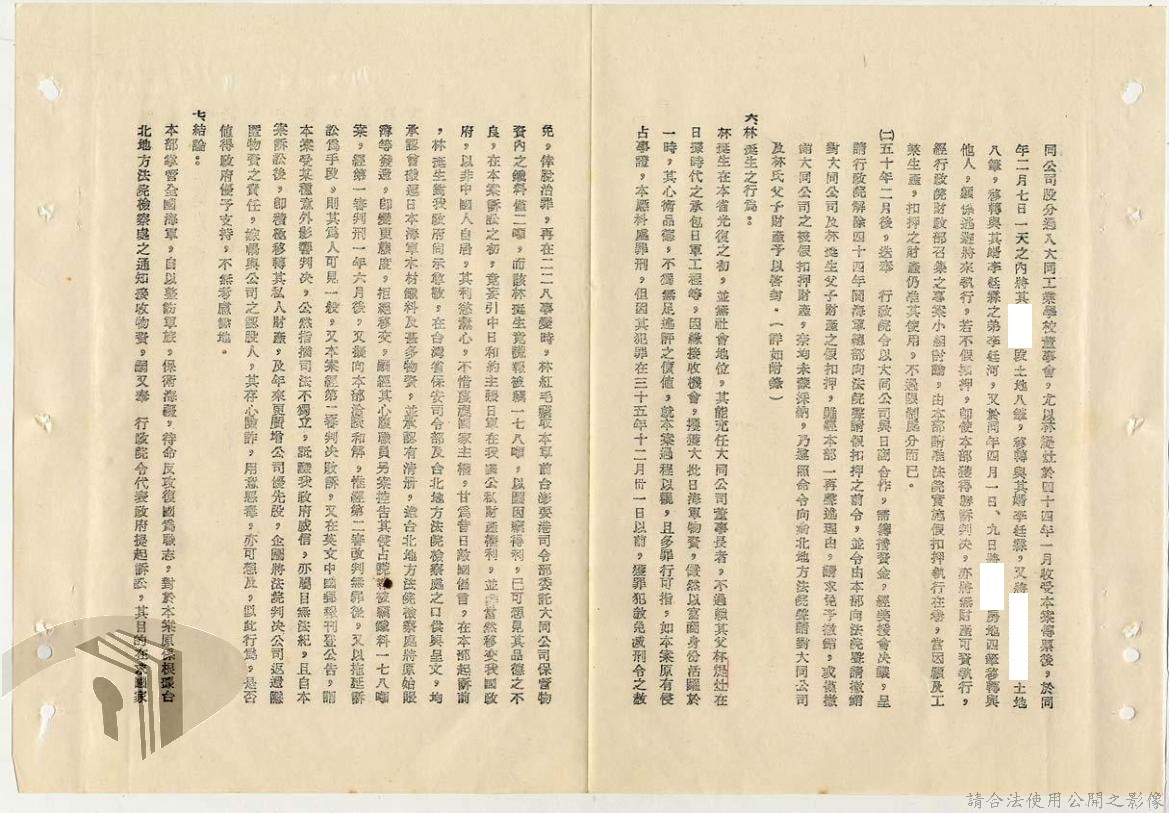 同公司股分過入大同工業學校董事會,尤以林煶灶於四十四年一月收受本案傳票後,於同
年二月七日一天之內將其 段土地八筆,移轉與其婿李廷霖,又將 土地
八筆,移轉與其婿李廷霖之弟李廷河,又於同年四月一日、九日將 房地四筆移轉與
他人,顯係逃避將來執行,若不假扣押,卽使本部獲得勝訴判決,亦將無財產可資執行,
經行政院財政部召集之專案小組討論,由本部請准法院實施假扣押執行在卷,當因顧及工
業生產,扣押之財產仍准其使用,不過限制處分而已。
㈡五十年二月後,迭奉 行政院令以大同公司與日商合作,需籌措資金,經美援會決議,呈
請行政院解除四十四年間海軍總部向法院聲請假扣押之前令,並令由本部向法院聲請撤銷
對大同公司及林挺生父子財產之假扣押,雖經本部一再聲述理由,請求免予撤銷,或僅撤
銷大同公司之被假扣押財產,奈均未蒙採納,乃遵照命令向台北地方法院聲請對大同公司
及林氏父子財產予以啓封。(詳如附錄)
六、林挺生之行爲:
林挺生在本省光復之初,並無社會地位,其能充任大同公司董事長者,不過賴其父林煶灶在
日據時代之承包日軍工程等,因緣接收機會,攫獲大批日海軍物資,儼然以富商身份活躍於
一時,其心術品德,不獨無足述評之價值,就本案過程以觀,且多罪行可指,如本案原有侵
占事證,本應科處罪刑,但因其犯罪在三十五年十二月卅一日以前,獲罪犯赦免減刑令之赦
免,倖脫治罪,再在二二八事變時,林紅毛竊取本軍前台澎要港司令部委託大同公司保管物
資內之鐵料僅二噸,而該林挺生竟謊報被竊一七八噸,以圖因竊得利,已可想見其品德之不
良,在本案訴訟之初,竟妄引中日和約主張日軍在我國公私財產權利,並非當然移交我國政
府,以非中國人自居,其利慾薰心,不惜蔑視國家主權,甘爲昔日敵國倡言,在本部起訴前
,林挺生對我政府向示恭敬,在台灣省保安司令部及台北地方法院檢察處之口供與呈文,均
承認曾搬運日本海軍木材鐵料及甚多物資,並承認有清册,迨台北地方法院檢察處將原始賬
簿等發還,卽變更態度,拒絕移交,願經其心腹職員另案控告其侵占謊報被竊鐵料一七八噸
案,經第一審判刑一年六月後,又擬向本部洽談和解,惟經第二審改判無罪後,又以拖延訴
訟爲手段,則其爲人可見一般,又本案經第二審判決敗訴,又在英文中國郵報刊登公告,謂
本案受某種意外影響判決,公然指摘司法不獨立,詆譭我政府威信,亦屬目無法紀,且自本
案訴訟後,卽積極移轉其私人財產,及年來更廣增公司優先股,企圖將法院判決公司返還隱
匿物資之責任,嫁禍與公司之認股人,其存心險詐,用意惡毒,亦可想及,以此行爲,是否
値得政府優予支持,不無考慮餘地。
七、結論:
本部掌管全國海軍,自以整飭軍旅,保衛海疆,待命反攻復國爲職志,對於本案原係根據台
北地方法院檢察處之通知接收物資,嗣又奉 行政院令代表政府提起訴訟,其目的在求國家
請合法使用公開之影像